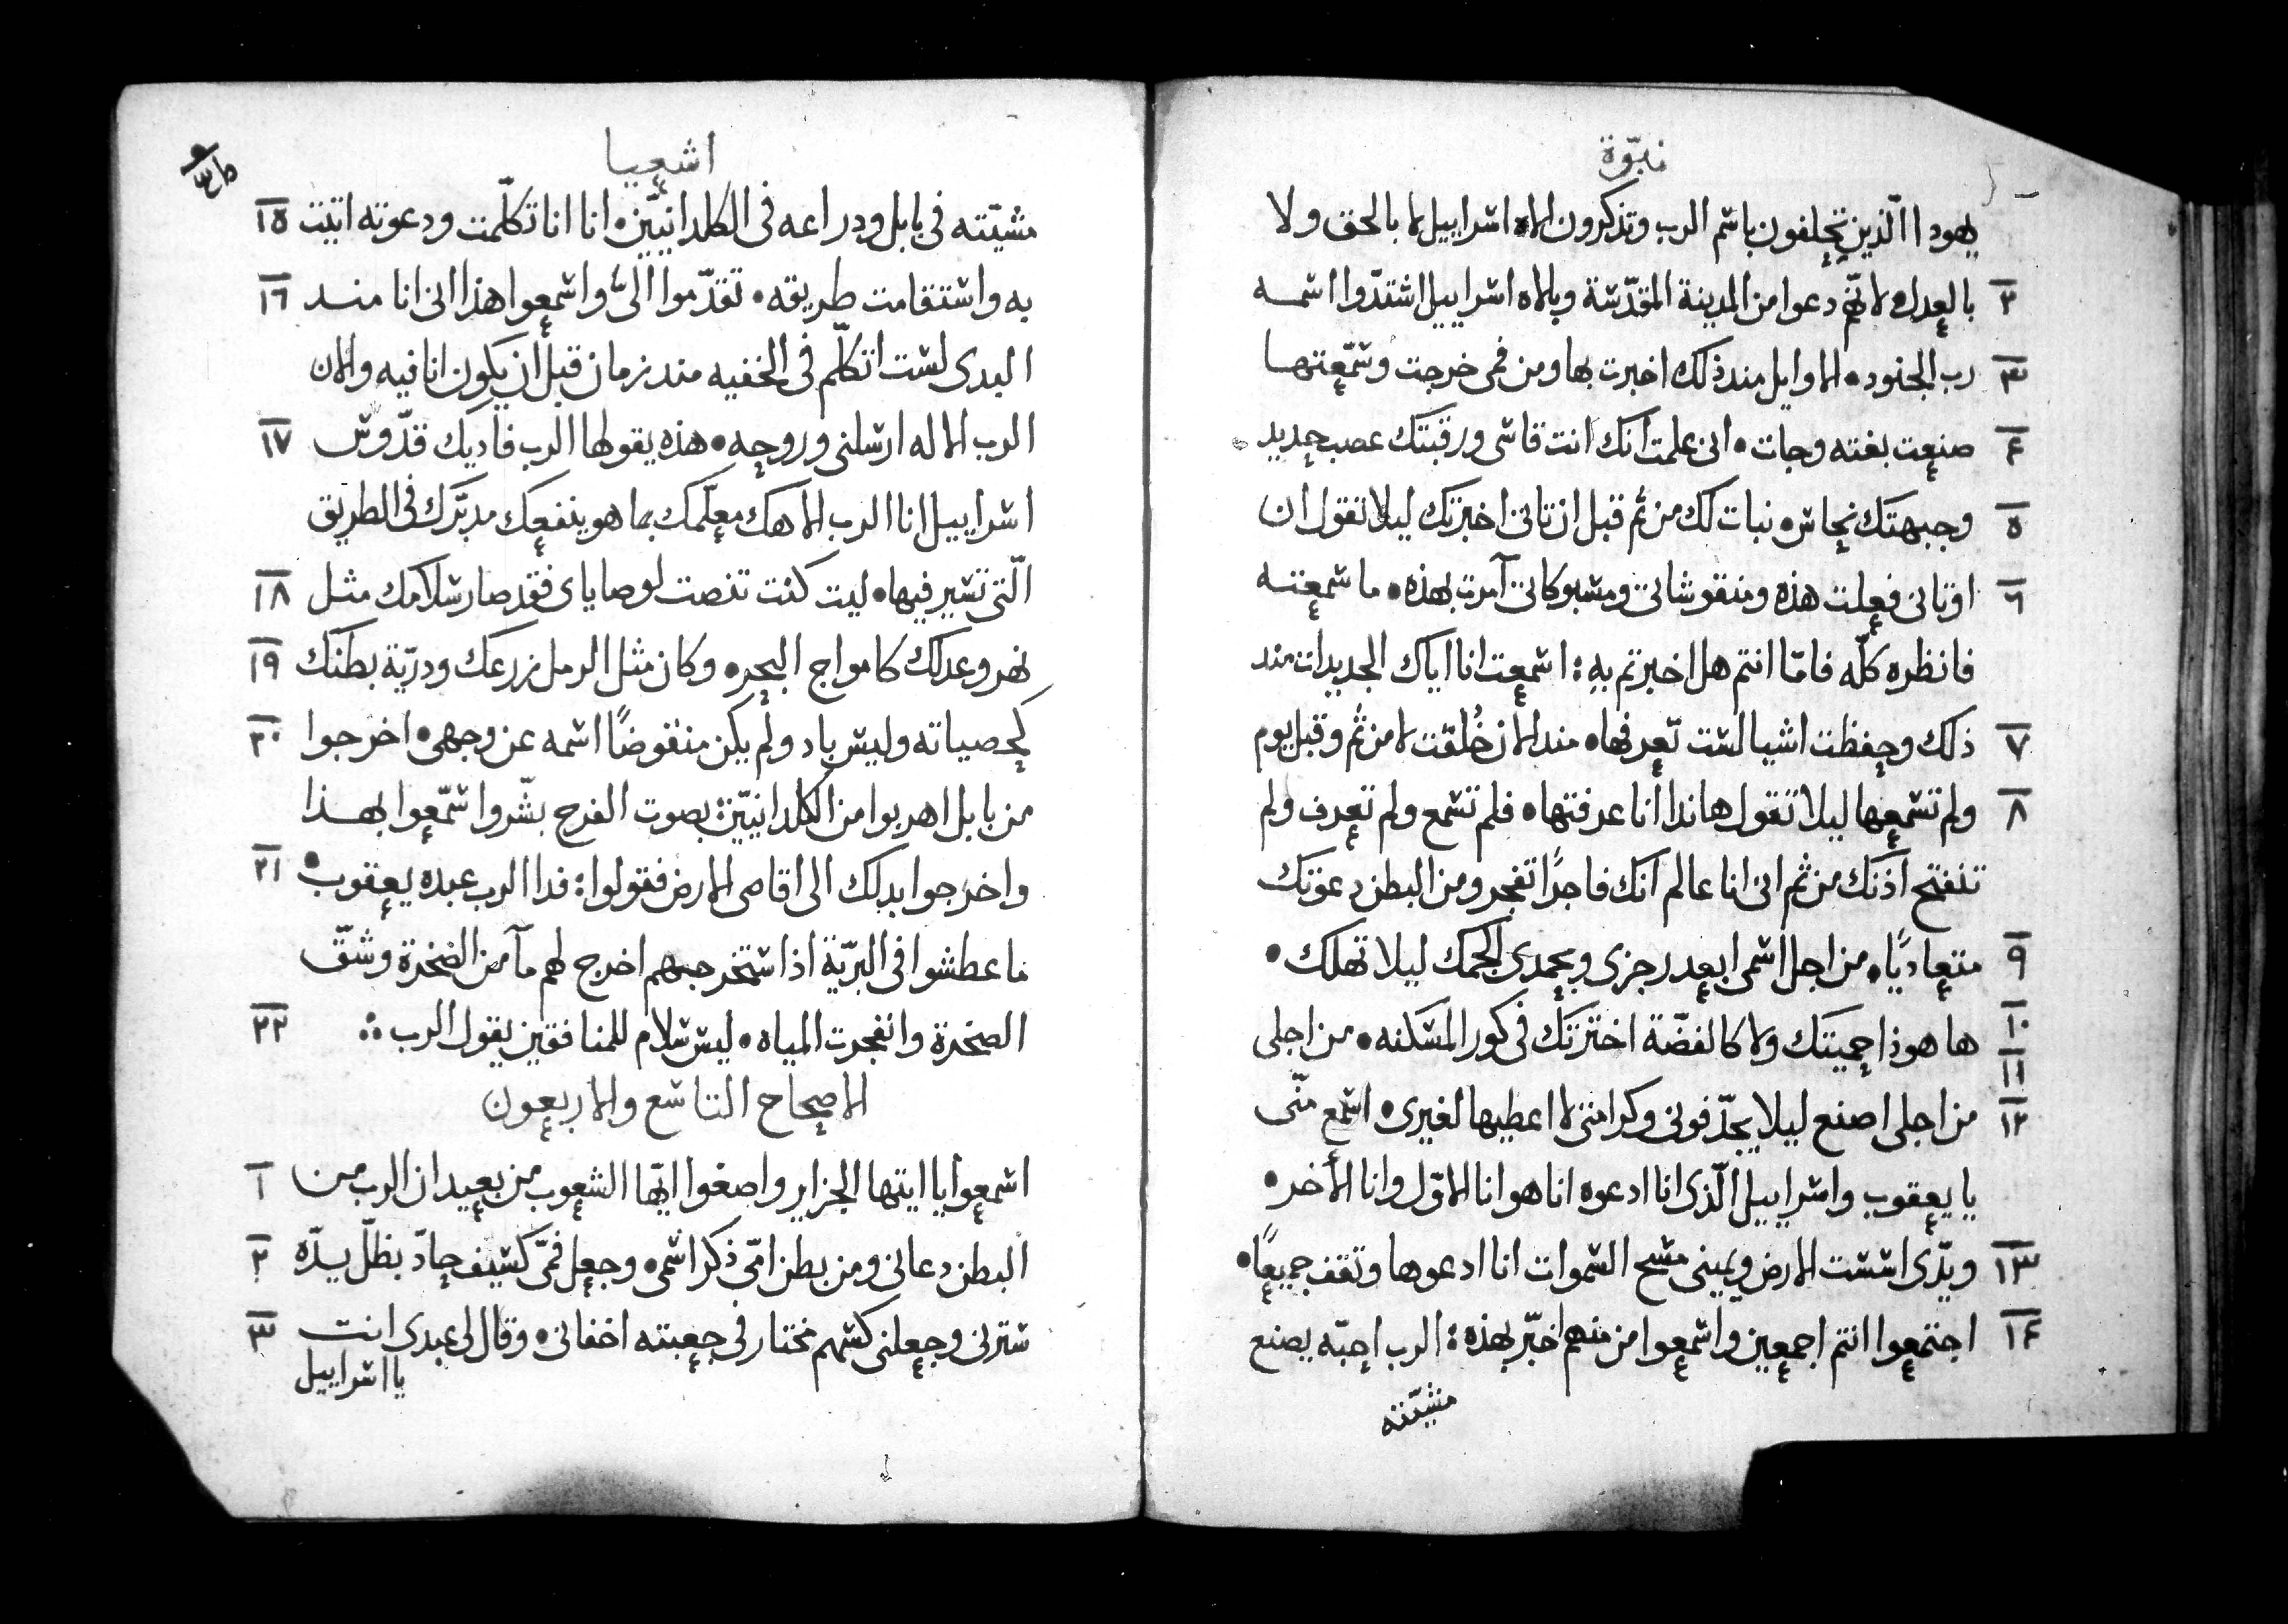 نبوّة
يهودا الّذين تحلفون باسم الرب وتذكرون الاه اسراييل لا بالحق ولا
بالعدل لانّهم دعوا من المدينة المقدّسة وبالاه اسراييل استندّوا اسمه ٢
رب الجنود • الاوايل مند ذلك اخبرت بها ومن فمى خرجت وسمّعتها ٣
صنعت بغته وجات • انى علمت انك انت قاسى ورقبتك عصب حديد ٤
وجبهتك نحاس • نبات لك من ثم قبل ان تاتى اخبرتك ليلا تقول ان ٥
اوتانى فعلت هذه ومنقوشاتى ومسبوكاتى آمرت بهذه • ما سمعته ٦
فانظره كلّه فامّا انتم هل اخبرتم به : اسمعت انا اياك الجديدات مند
ذلك وحفظت اشيا لست تعرفها • مند الان خُلقت لا من ثم وقبل يوم ٧
ولم تسمعها ليلا تقول هاندا انا عرفتها • فلم تسمع ولم تعرف ولم ٨
تنفتح اذنك من ثم انى انا عالم انك فاجرًا تفجر ومن البطن دعوتك
متعاديًا • من اجل اسمى ابعد رجزى وبحمدى الجمك ليلا تهلك • ٩
ها هوذا حميتك ولا كالفضّة اخترتك فى كور المسكنه • من اجلى ١٠ ١١
من اجلى اصنع ليلا يجدّفونى وكرامتى لا اعطيها لغيرى • اسمع منّى ١٢
يا يعقوب واسراييل الّذى انا ادعوه انا هو انا الاوّل وانا الاخر •
ويدّى اسست الارض ويمينى مسح السموات انا ادعوها وتقف جميعًا • ١٣
اجتمعوا انتم اجمعين واسمعوا من منهم اخبّر بهذه : الرب احبّه يصنع ١٤
مشيّته
اشعيا
مشيّته فى بابل ودراعه فى الكلدانيّين • انا انا تكلّمت ودعوته اتيت ١٥
به واستقامت طريقه • تقدّموا الىّ واسمعوا هذا انى انا مند ١٦
البدى لست اتكلّم فى الخفيه مند زمان قبل ان يكون انا فيه والان
الرب الاله ارسلنى وروحه • هذه يقولها الرب فاديك قدّوس ١٧
اسراييل انا الرب الاهك معلّمك بما هو ينفعك مدبّرك فى الطريق
الّتى تسير فيها • ليت كنت تنصت لوصاياى فقد صار سلامك مثل ١٨
نهر وعدلك كامواج البحر • وكان مثل الرمل زرعك ودريّة بطنك ١٩
كحصياته وليس باد ولم يكن منقوضًا اسمه عن وجهى • اخرجوا ٢٠
من بابل اهربوا من الكلدانيّين : بصوت الفرح بشّروا سمّعوا بهذا
واخرجوا بدلك الى اقاصى الارض فقولوا : فدا الرب عبده يعقوب • ٢١
ما عطشوا فى البريّة اذ استخرجهم اخرج لهم مآ من الصخرة وشقّ
الصخرة وانفجرت المياه • ليس سلام للمنافقين يقول الرب ٢٢
الاصحاح التاسع والاربعون
اسمعوا يا ايتها الجزاير واصغوا ايّها الشعوب من بعيد ان الرب من ١
البطن دعانى ومن بطن امّى ذكر اسمى • وجعل فمّى كسيف حادّ بظلّ يدّه ٢
سترنى وجعلنى كسهم مختار فى جعبته اخفانى • وقال لى عبدى انت ٣
يا اسراييل